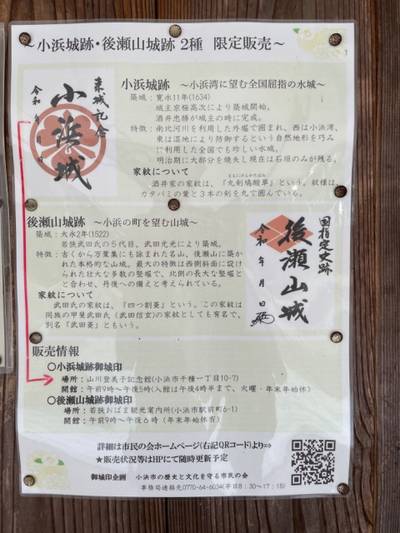 ～小浜城跡・後瀬山城跡2種 限定販売～
来城記念
小浜城
令和 年 月 日
小浜城跡 ～小浜湾に望む全国屈指の水城～
築城：寛永11年(1634)
城主京極高次により築城開始。
酒井忠勝が城主の時に完成。
特徴：南北河川を利用した外堀で囲まれ、西は小浜湾、
東は湿地により防御するという自然地形を巧み
に利用した全国でも珍しい水城。
明治期に大部分を焼失し現在は石垣のみが残る。
家紋について
酒井家の家紋は、『丸剣鳩酸草』という。紋様は
カタバミの葉と3本の剣を丸で囲んでいる。
後瀬山城跡 ～小浜の町を望む山城～
築城：大永2年(1522)
若狭武田氏の5代目、武田元光により築城。
特徴：古くから万葉集にも詠まれた名山、後瀬山に築か
れた本格的な山城。最大の特徴は西側斜面に設け
られた壮大な多数の竪堀で、北側の長大な竪堀と
と合わせ、丹後への備えと考えられている。
家紋について
武田氏の家紋は、『四つ割菱』という。この家紋は
同族の甲斐武田氏（武田信玄）の家紋としても有名で、
別名『武田菱』ともいう。
国指定史跡
後瀬山城
令和 年 月 日
販売情報
○小浜城跡御城印
場所：山川登美子記念館(小浜市千種一丁目10-7)
開館：午前9時～午後5時(入館は午後4時半まで、火曜・年末年始休)
○後瀬山城跡御城印
場所：若狭おばま観光案内所(小浜市駅前町6-1)
開館：午前9時～午後6時(年末年始休)
詳細は市民の会ホームページ(右記QRコード)より⇒
★販売状況等はHPにて随時更新予定
御城印企画 小浜市の歴史と文化を守る市民の会
事務局連絡先0770-64-6034(平日8:30～17:15)